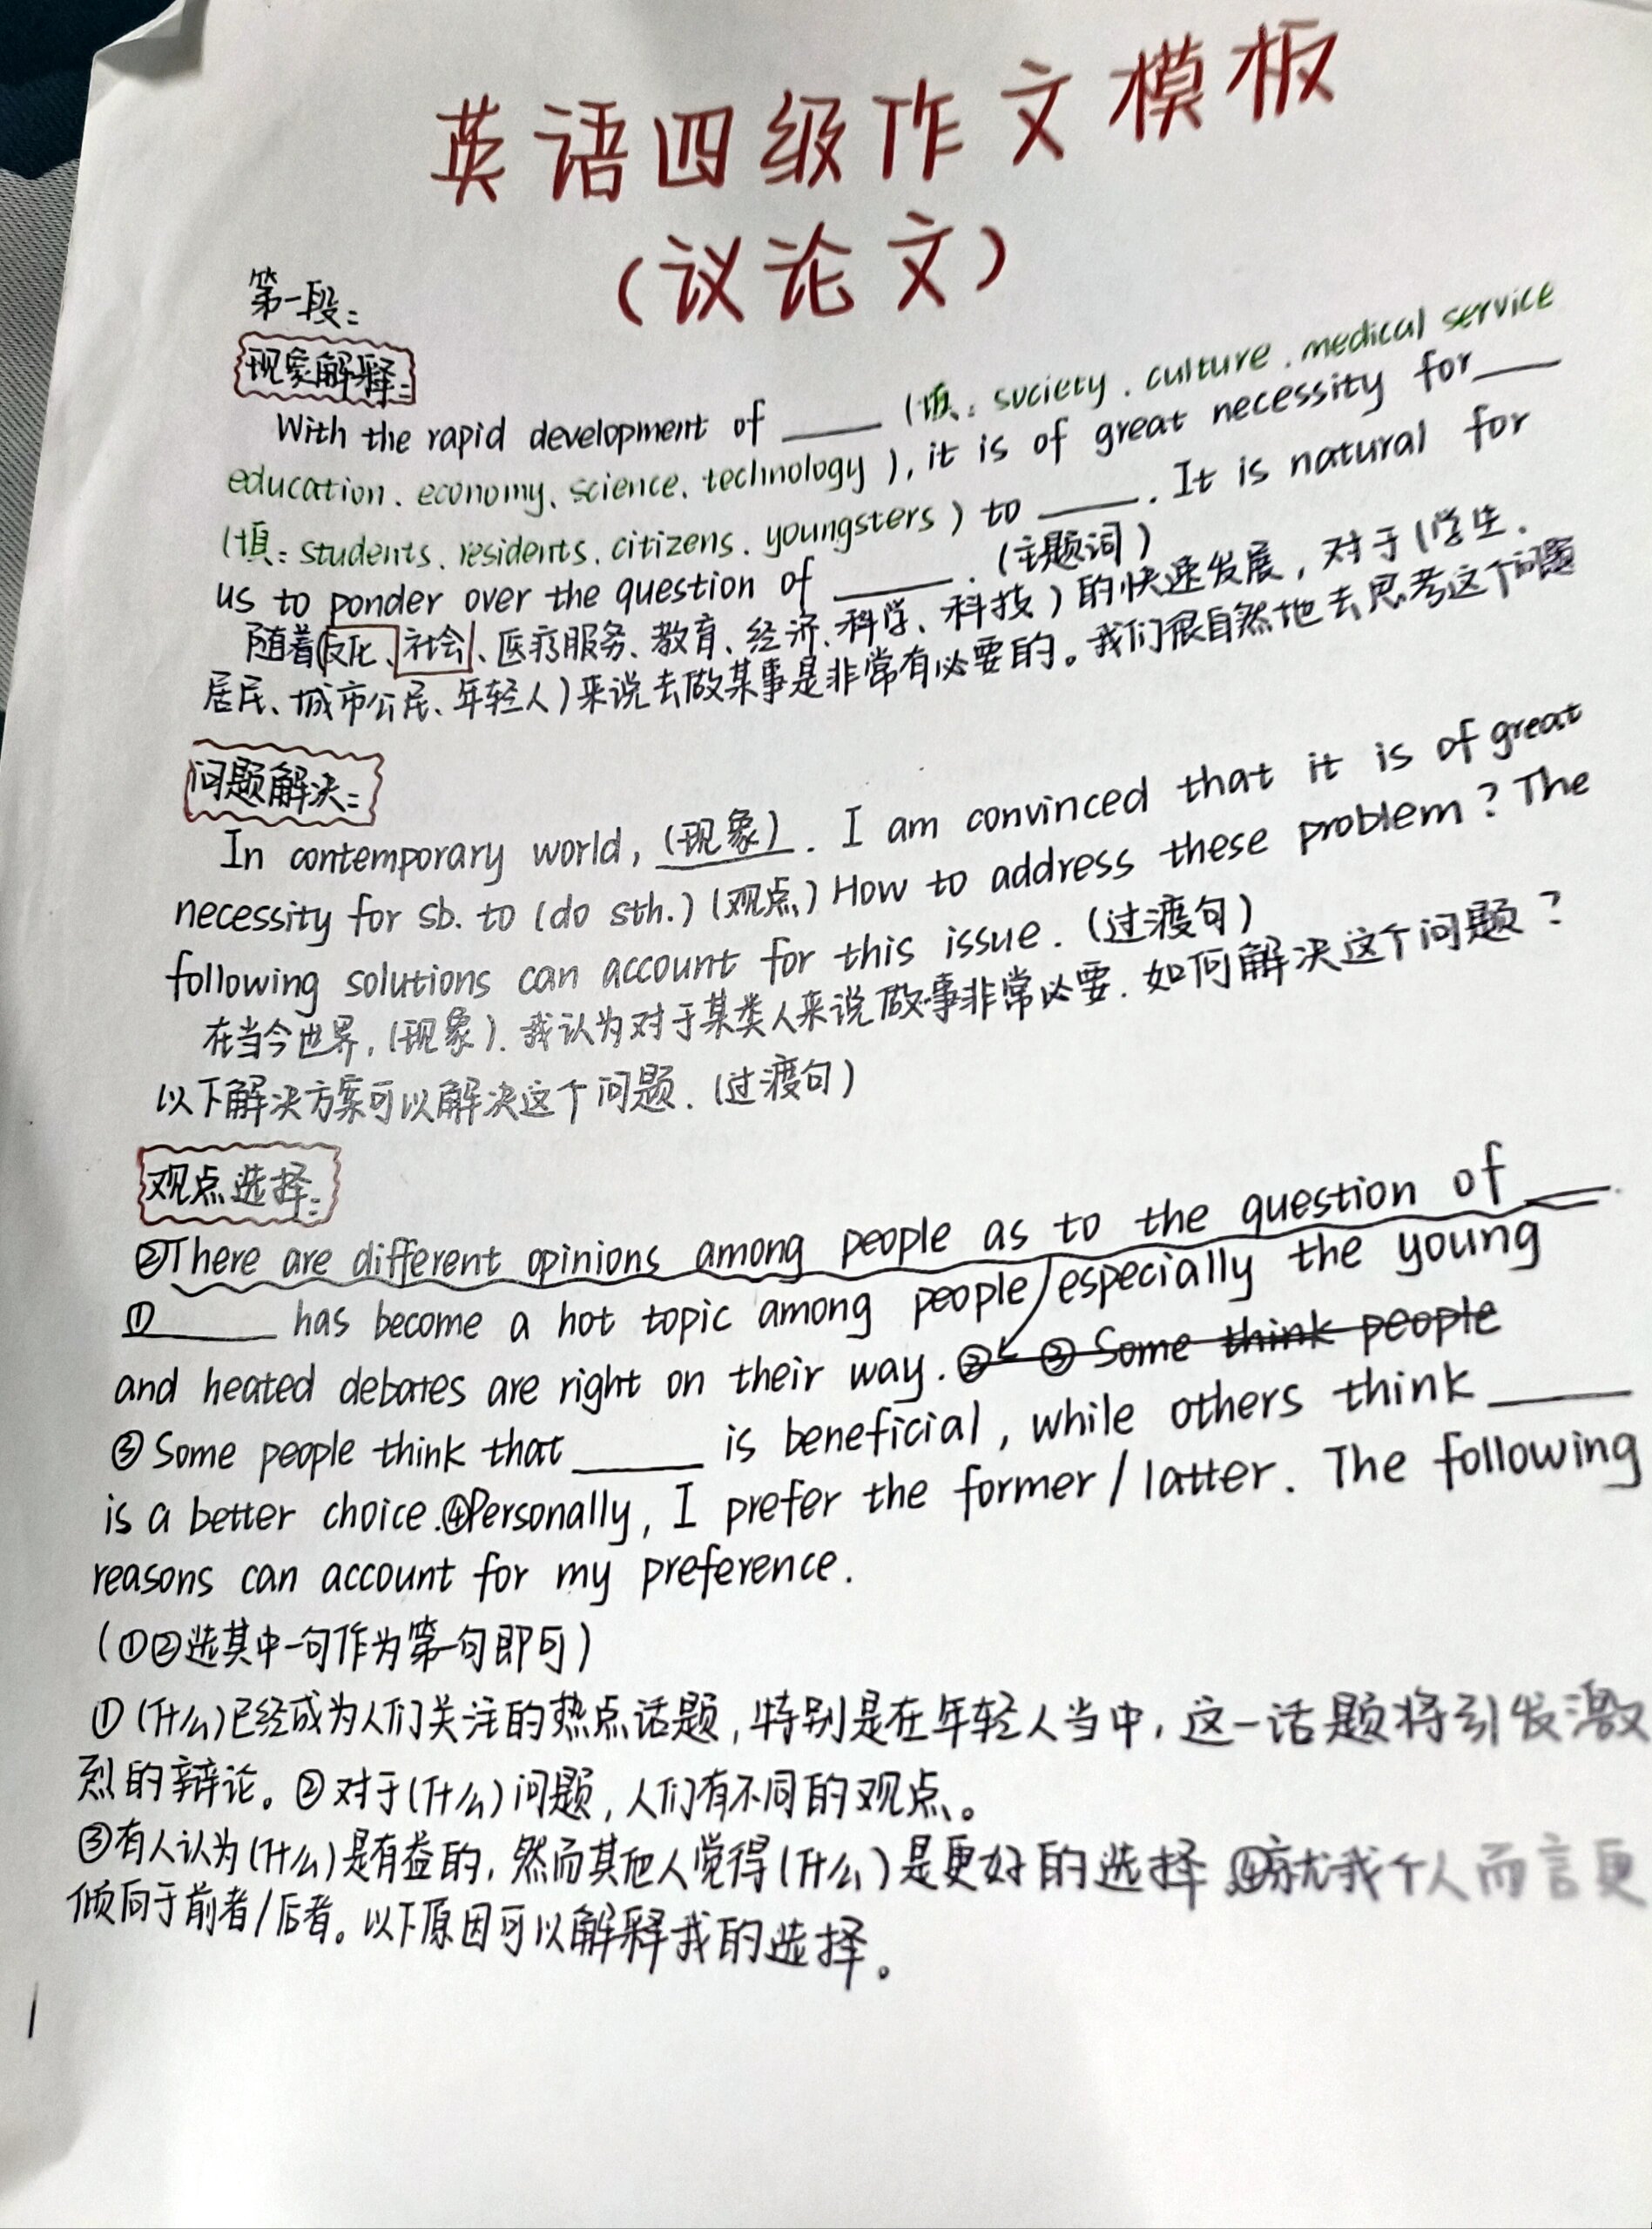 英语四级作文模板
(议论文)
第一段:
现象解释:
With the rapid development of ____ (填: society、culture、medical service
education、economy、science、technology), it is of great necessity for ____
(填: students、residents、citizens、youngsters) to ____. It is natural for
us to ponder over the question of ____. (主题词)
随着(反化、社会、医疗服务、教育、经济、科学、科技)的快速发展, 对于(学生、
居民、城市公民、年轻人)来说去做某事是非常有必要的。我们很自然地去思考这个问题
问题解决:
In contemporary world, (现象). I am convinced that it is of great
necessity for sb. to (do sth.) (观点) How to address these problem? The
following solutions can account for this issue. (过渡句)
在当今世界, (现象). 我认为对于某类人来说做事非常必要. 如何解决这个问题?
以下解决方案可以解决这个问题. (过渡句)
观点选择:
②There are different opinions among people as to the question of ____.
①____ has become a hot topic among people/especially the young
and heated debates are right on their way. ② ③ Some think people
③ Some people think that ____ is beneficial, while others think ____
is a better choice.④Personally, I prefer the former/latter. The following
reasons can account for my preference.
(①②选其中一句作为第一句即可)
①(什么)已经成为人们关注的热点话题, 特别是在年轻人当中, 这一话题将引发激
烈的辩论。②对于(什么)问题, 人们有不同的观点。
③有人认为(什么)是有益的, 然而其他人觉得(什么)是更好的选择.④就我个人而言更
倾向于前者/后者。以下原因可以解释我的选择。
1